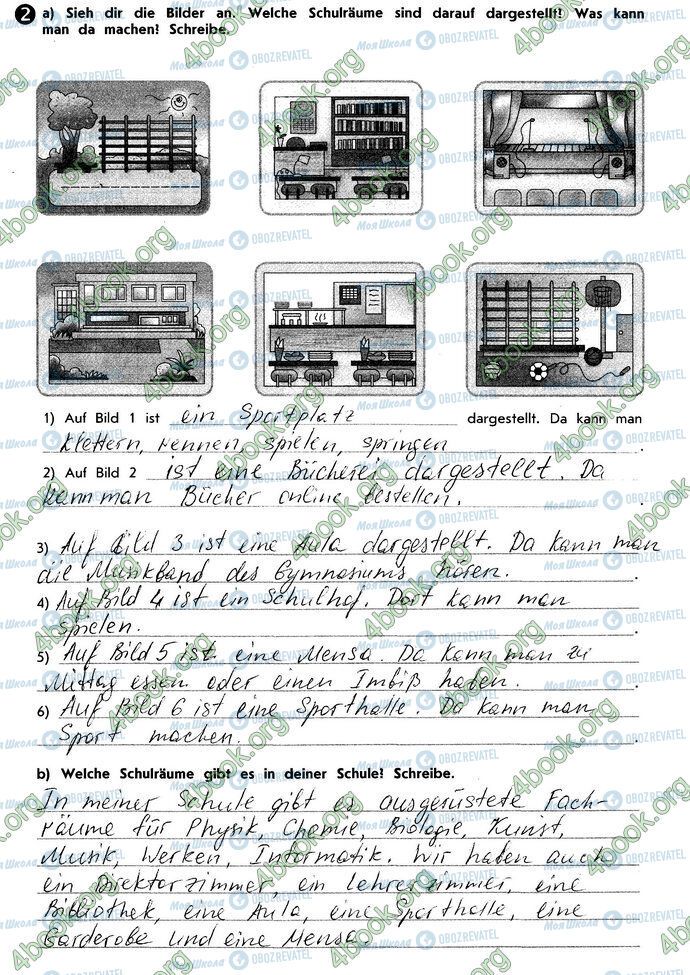 2 a) Sieh dir die Bilder an. Welche Schulräume sind darauf dargestellt! Was kann
man da machen! Schreibe.
1) Auf Bild 1 ist ein Sportplatz dargestellt. Da kann man
klettern, rennen, spielen, springen.
2) Auf Bild 2 ist eine Bücherei dargestellt. Da
kann man Bücher online bestellen.
3) Auf Bild 3 ist eine Aula dargestellt. Da kann man
die Musikband des Gymnasiums hören.
4) Auf Bild 4 ist ein Schulhof. Dort kann man
spielen.
5) Auf Bild 5 ist eine Mensa. Da kann man zu
Mittag essen oder einen Imbiß haben.
6) Auf Bild 6 ist eine Sporthalle. Da kann man
Sport machen.
b) Welche Schulräume gibt es in deiner Schule! Schreibe.
In meiner Schule gibt es ausgerüstete Fach-
räume für Physik, Chemie, Biologie, Kunst,
Musik, Werken, Informatik. Wir haben auch
ein Direktorzimmer, ein Lehrerzimmer, eine
Bibliothek, eine Aula, eine Sporthalle, eine
Garderobe und eine Mensa
4book.org
Моя Школа
OBOZREVATEL